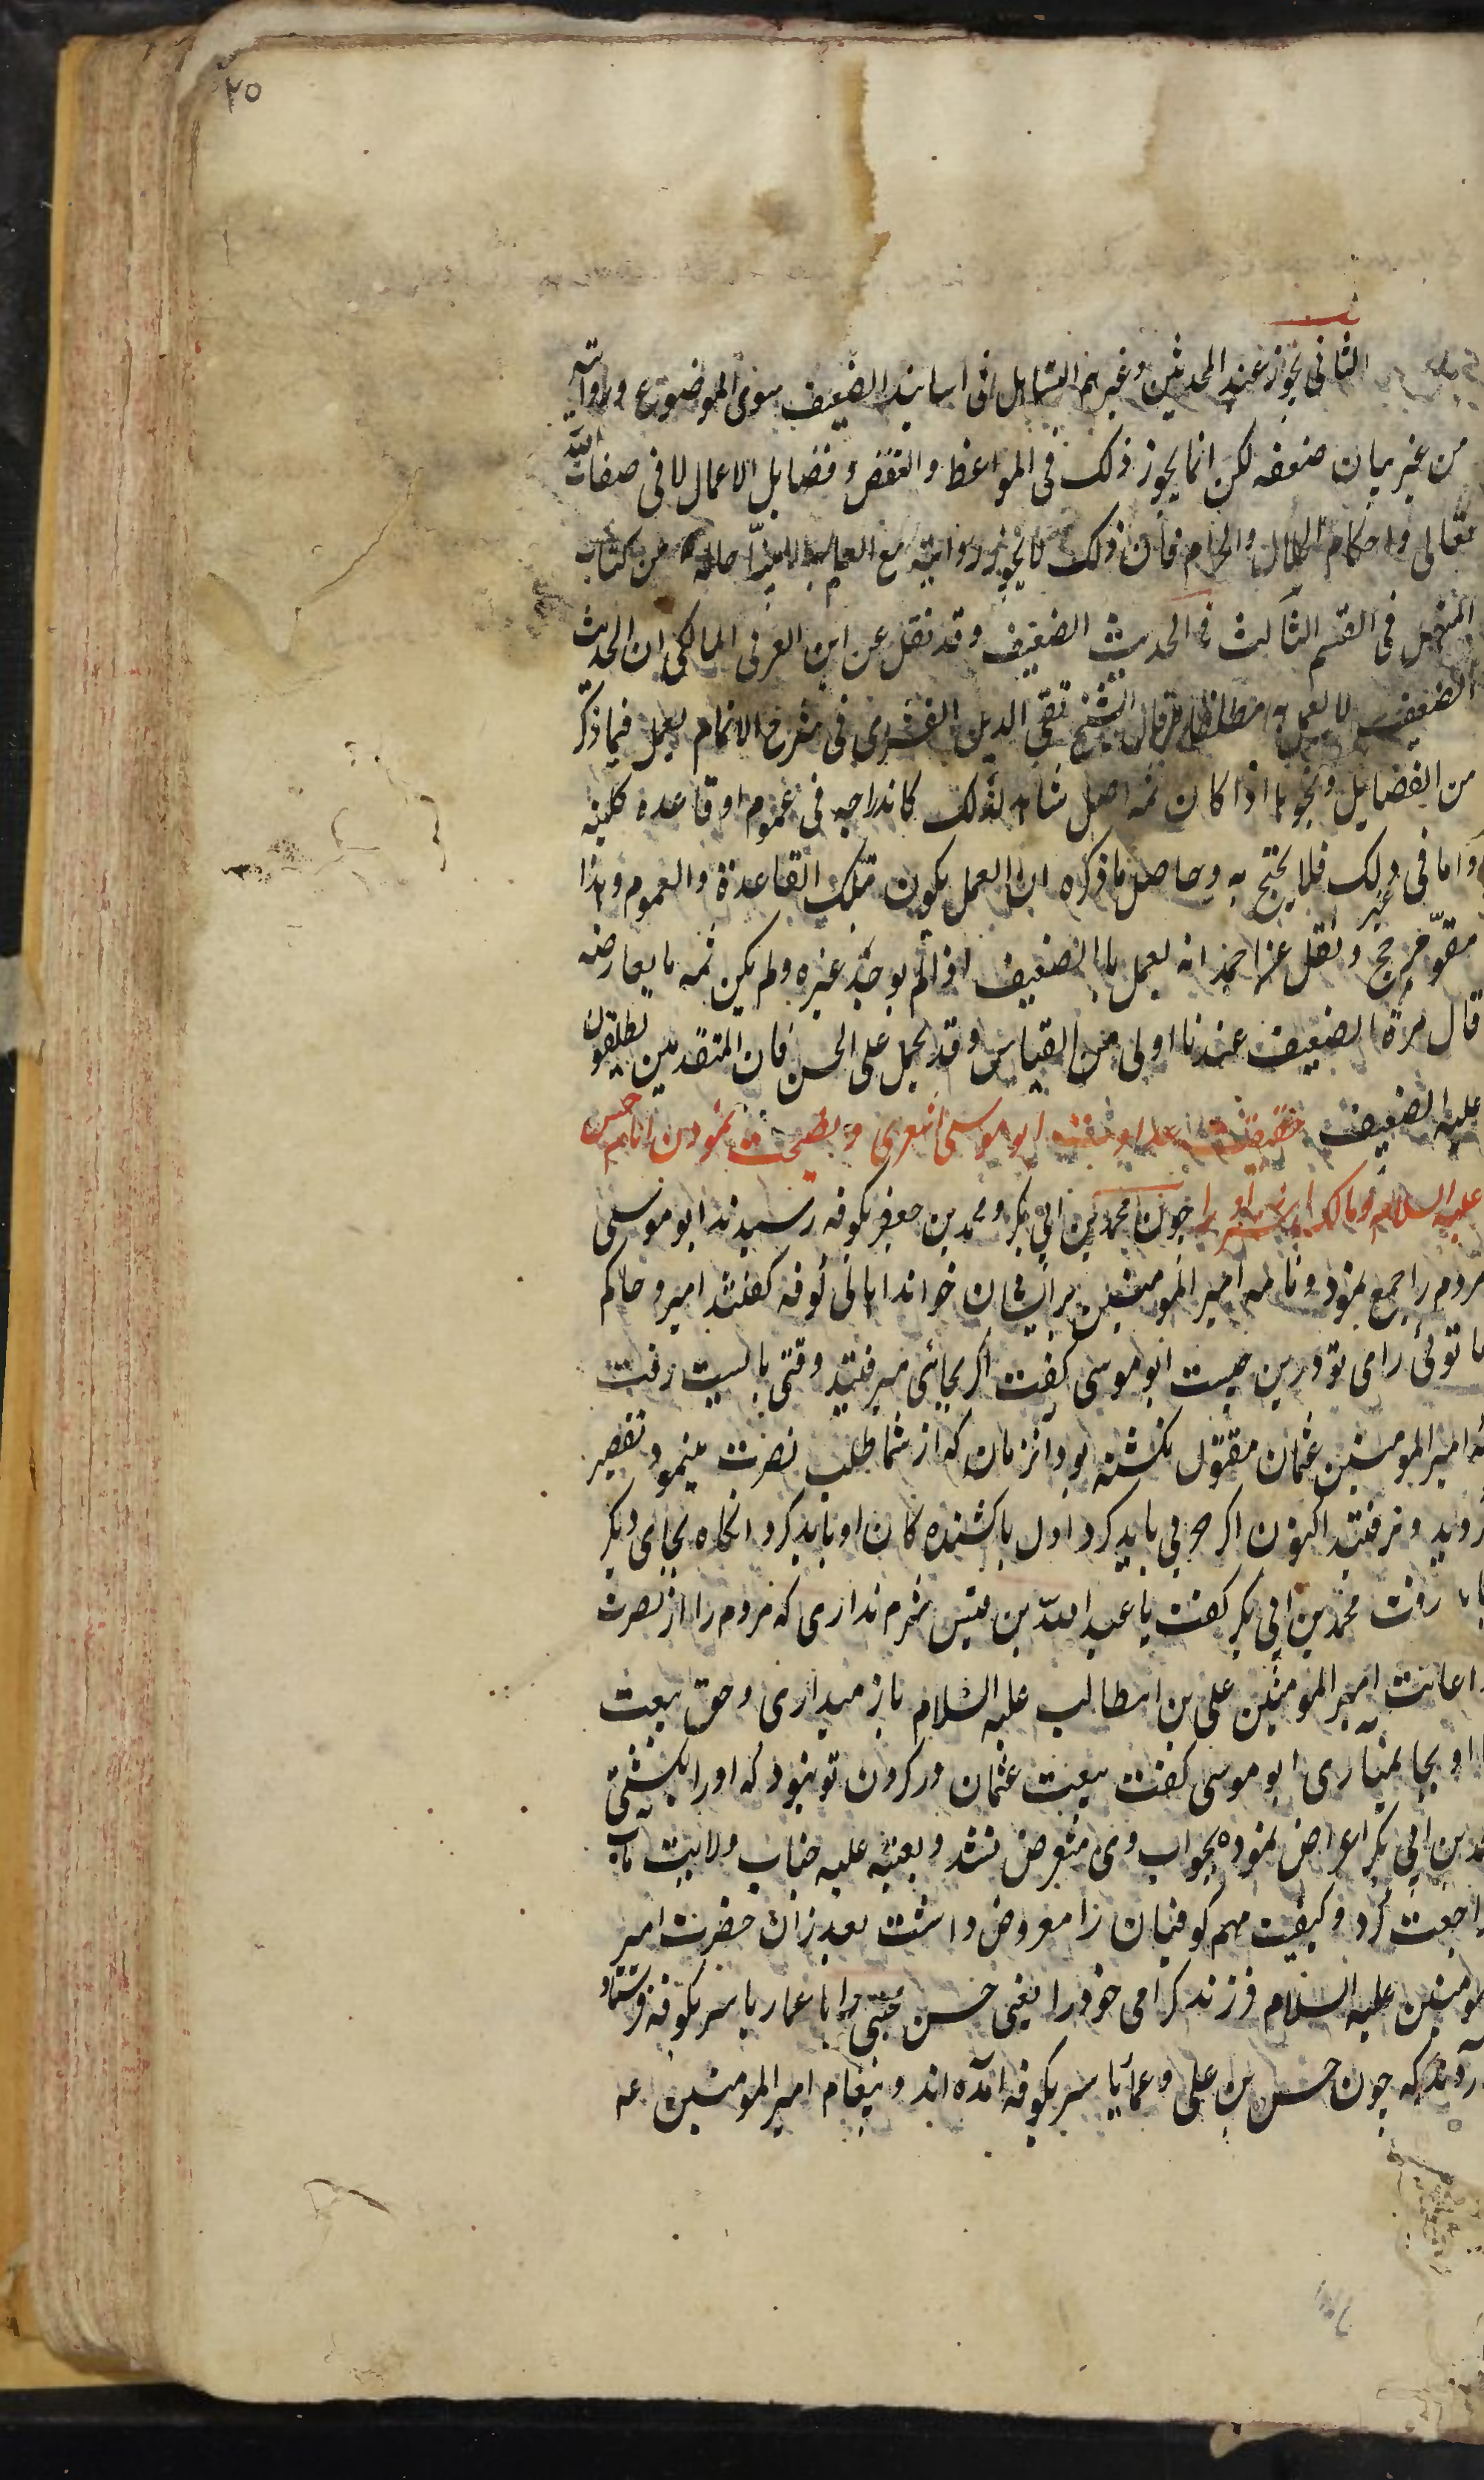 ٢٥
الثانی یجوز عند المحدثین و غیرهم التساهل فی اسانید الضعیف سوی الموضوع و روایته
من غیر بیان ضعفه لکن انما یجوز ذلک فی المواعظ و القصص و فضایل الاعمال لا فی صفات الله
تعالی و احکام الحلال و الحرام فان ذلک لا یجوز روایته مع العلم به الا مبینا حاله من کتاب
المنهل فی القسم الثالث فی الحدیث الضعیف و قد نقل عن ابن العربی المالکی ان الحدیث
الضعیف لا یعمل به مطلقا و قال الشیخ تقی الدین القشیری فی شرح الالمام یعمل فیما ذکر
من الفضایل و نحوها اذا کان ثمه اصل شاهد لذلک کاندراجه فی عموم او قاعده کلیه
و اما فی غیر ذلک فلا یحتج به و حاصل ما ذکره ان العمل یکون بتلک القاعدة و العموم و هذا
مقوّ مرجح و نقل عن احمد انه یعمل بالضعیف اذا لم یوجد غیره و لم یکن ثمه ما یعارضه
قال مرة الضعیف عندنا اولی من القیاس و قد یحمل علی الحسن فان المتقدمین یطلقون
علیه الضعیف ابو موسی اشعری و نصیحت نمودن امام حسن
علیه السلام و مالک اشتر او را چون محمد بن ابی بکر و محمد بن جعفر بکوفه رسیدند ابو موسی
مردم را جمع نمود و نامه امیر المومنین بر ایشان خواند اهالی کوفه کفتند امیر و حاکم
ما توئی رای تو درین چیست ابو موسی کفت اکر بجائی میرفتید وقتی بایست رفت
که امیر المومنین عثمان مقتول نکشته بود انزمان که از شما طلب نصرت مینمود تقصیر
کردید و نرفتید اکنون اکر حربی باید کرد اول با کشنده کان او باید کرد انکاه بجای دیکر
باید رفت محمد بن ابی بکر کفت یا عبد الله بن قیس شرم نداری که مردم را از نصرت
و اعانت امیر المومنین علی بن ابیطالب علیه السلام باز میداری و حق بیعت
او بجا نمیآری ابو موسی کفت بیعت عثمان در کردن تو نبود که او را بکشتی
محمد بن ابی بکر اعراض نموده بجواب وی متعرض نشد و بعتبه علیه جناب ولایت ماب
مراجعت کرد و کیفیت مهم کوفیان را معروض داشت بعد از ان حضرت امیر
المومنین علیه السلام فرزند کرامی خود را یعنی حسن مجتبی را با عمار یاسر بکوفه فرستاد
آورده اند که چون حسن بن علی و عمار یاسر بکوفه آمده اند و پیغام امیر المومنین عه